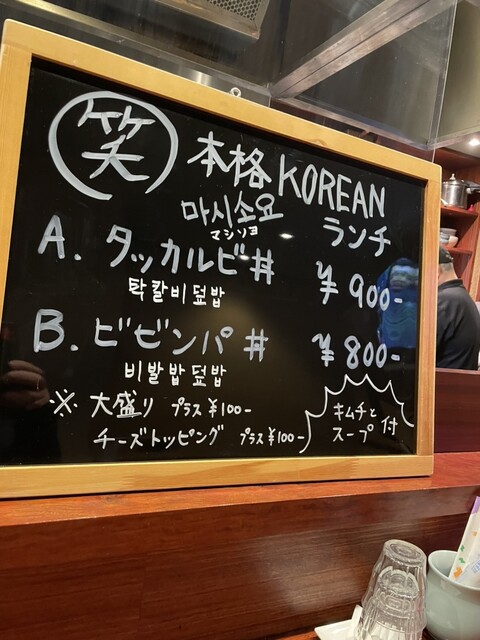 笑 本格KOREAN
마시소요 ランチ
マシソヨ
A. タッカルビ丼 ¥900-
탁칼비덮밥
B. ビビンパ丼 ¥800-
비발밥덮밥
※ 大盛り プラス¥100-
チーズトッピング プラス¥100-
キムチと
スープ付